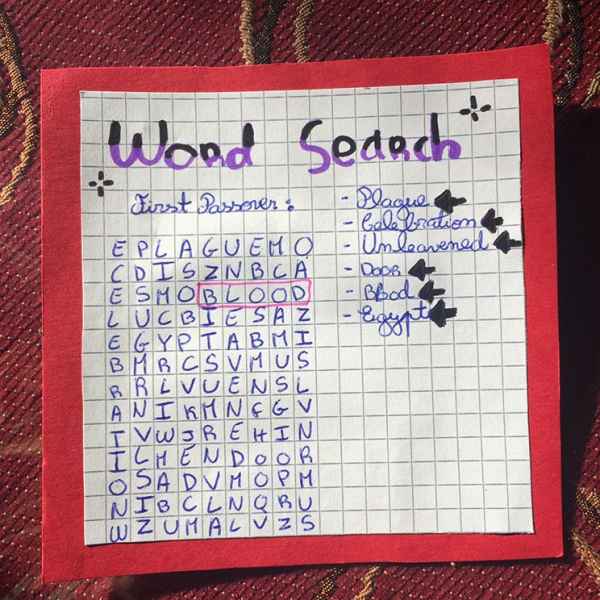 Word Search
First Passover :
- Plague
- Celebration
- Unleavened
- Door
- Blood
- Egypt
E P L A G U E M O
C D I S Z N B C A
E S M O B L O O D
L U C B I E S A Z
E G Y P T A B M I
B M R C S V M U S
R R L V U E N S L
A N I K M N F G V
T V W J R E H I N
I L M E N D O O R
O S A D V M O P M
N I B C L N Q R U
W Z U M A L V Z S